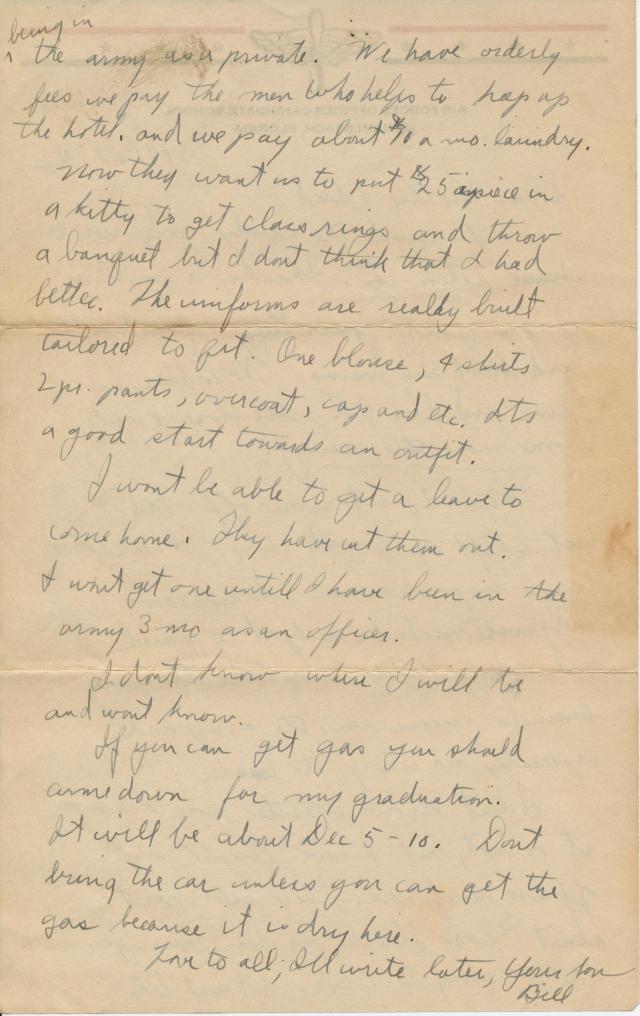 being in
the army as a private. We have orderly
fees we pay the men who helps to keep up
the hotel. and we pay about $10 a mo. laundry.
Now they want us to put $25 apiece in
a kitty to get class rings and throw
a banquet but I dont think that I had
better. The uniforms are really built
tailored to fit. One blouse, 4 shirts
2 pr. pants, overcoat, cap and etc. Its
a good start towards an outfit.
I wont be able to get a leave to
come home. They have cut them out.
I wont get one untill I have been in the
army 3 mo as an officer.
I dont know where I will be
and wont know.
If you can get gas you should
come down for my graduation.
It will be about Dec 5-10. Dont
bring the car unless you can get the
gas because it is dry here.
Love to all, I'll write later, Your son
Bill